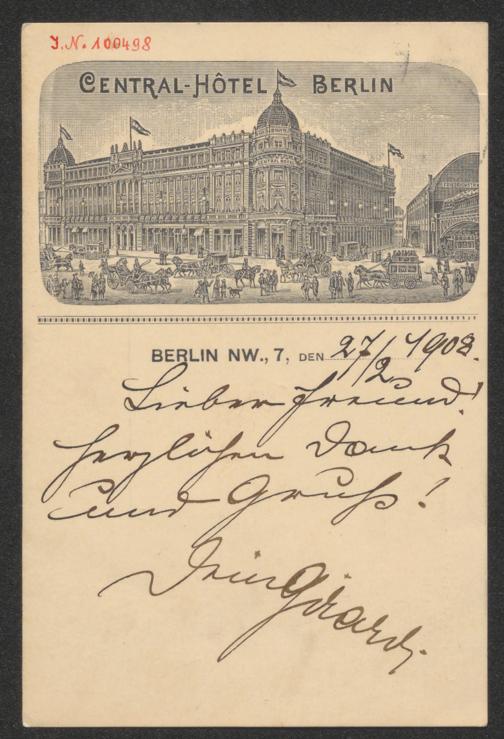 J.N. 100498
CENTRAL-HÔTEL BERLIN
BERLIN NW., 7, DEN 27/2 1908.
Lieber Freund!
Herzlichen Dank
und Gruß!
Dein Girardi.